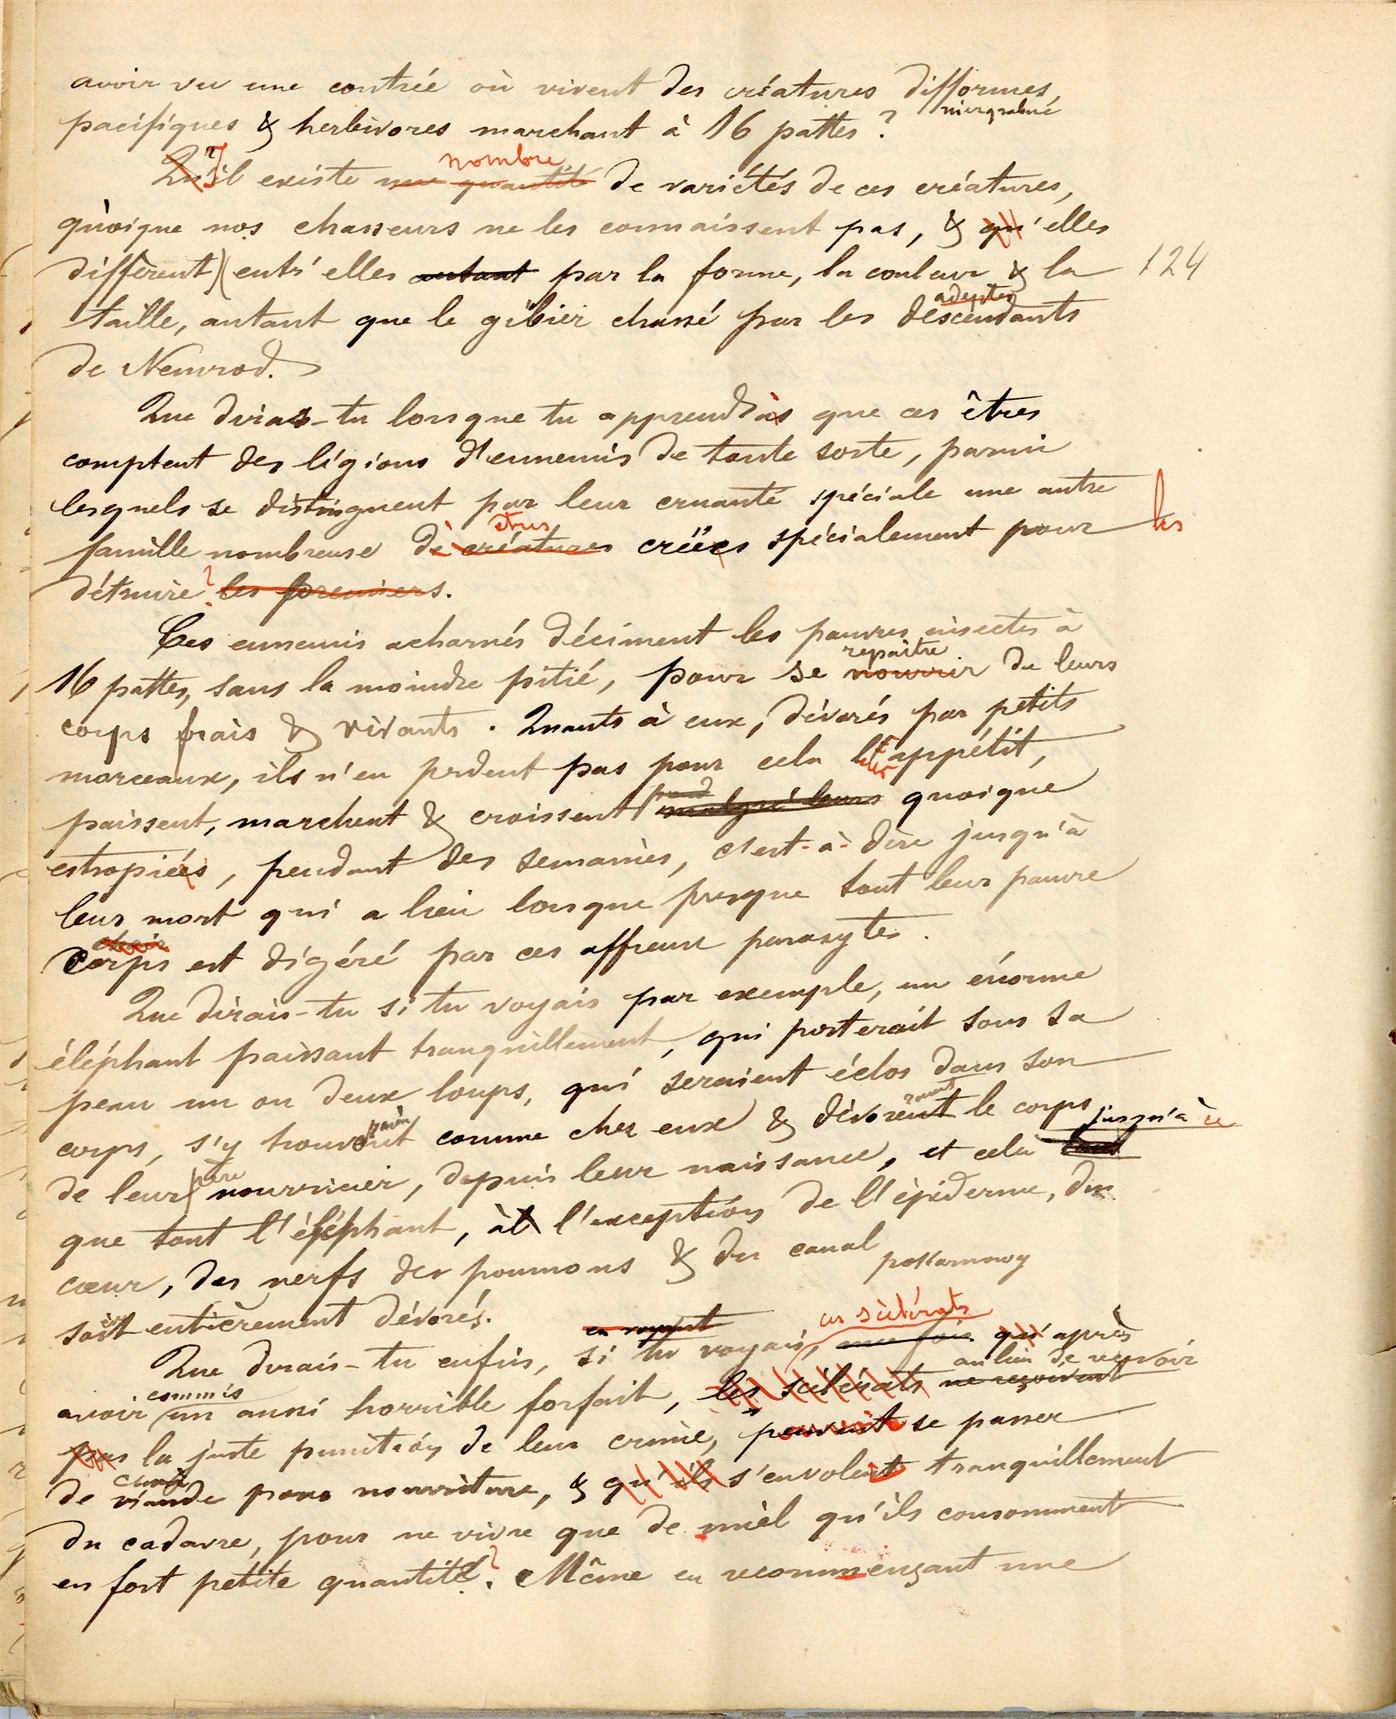 avoir vu une contrée où vivent des créatures difformes,
pacifiques & herbivores marchant à 16 pattes ?
nombre
Qu'il existe une quantité de variétés de ces créatures,
quoique nos chasseurs ne les connaissent pas, & qu'elles
diffèrent entr'elles autant par la forme, la couleur & la 124
adeptes
taille, autant que le gibier chassé par les descendants
de Nemrod.
Que dirais-tu lorsque tu apprendras que ces êtres
comptent des légions d'ennemis de toute sorte, parmi
lesquels se distinguent par leur cruauté spéciale une autre
êtres
famille nombreuse de créatures créées spécialement pour les
détruire ? les premiers.
Ces ennemis acharnés déciment les pauvres insectes à
repaître
16 pattes, sans la moindre pitié, pour se nourrir de leurs
corps frais & vivants. Quants à eux, dévorés par petits
morceaux, ils n'en perdent pas pour cela l'appétit,
paissent, marchent & croissent malgré leurs quoique
estropiés, pendant des semaines, c'est-à-dire jusqu'à
leur mort qui a lieu lorsque presque tout leur pauvre
corps est digéré par ces affreux parasytes.
Que dirais-tu si tu voyais par exemple, un énorme
éléphant paissant tranquillement, qui porterait sous sa
peau un ou deux loups, qui seraient éclos dans son
corps, s'y trouvent comme chez eux & dévorent le corps
jusqu'à ce
de leur père nourricier, depuis leur naissance, et cela
que tout l'éléphant, à l'exception de l'épiderme, du
cœur, des nerfs des poumons & du canal
soit entièrement dévorés.
en voyant ces scélérats
Que dirais-tu enfin, si tu voyais, une fois qu'après
commis au lieu de recevoir
avoir un aussi horrible forfait, les scélérats ne reçoivent
pas la juste punition de leur crime, peuvent se passer
de viande pour nourriture, & qu'ils s'envolent tranquillement
du cadavre, pour ne vivre que de miel qu'ils consomment
en fort petite quantité ? Même en recommençant une